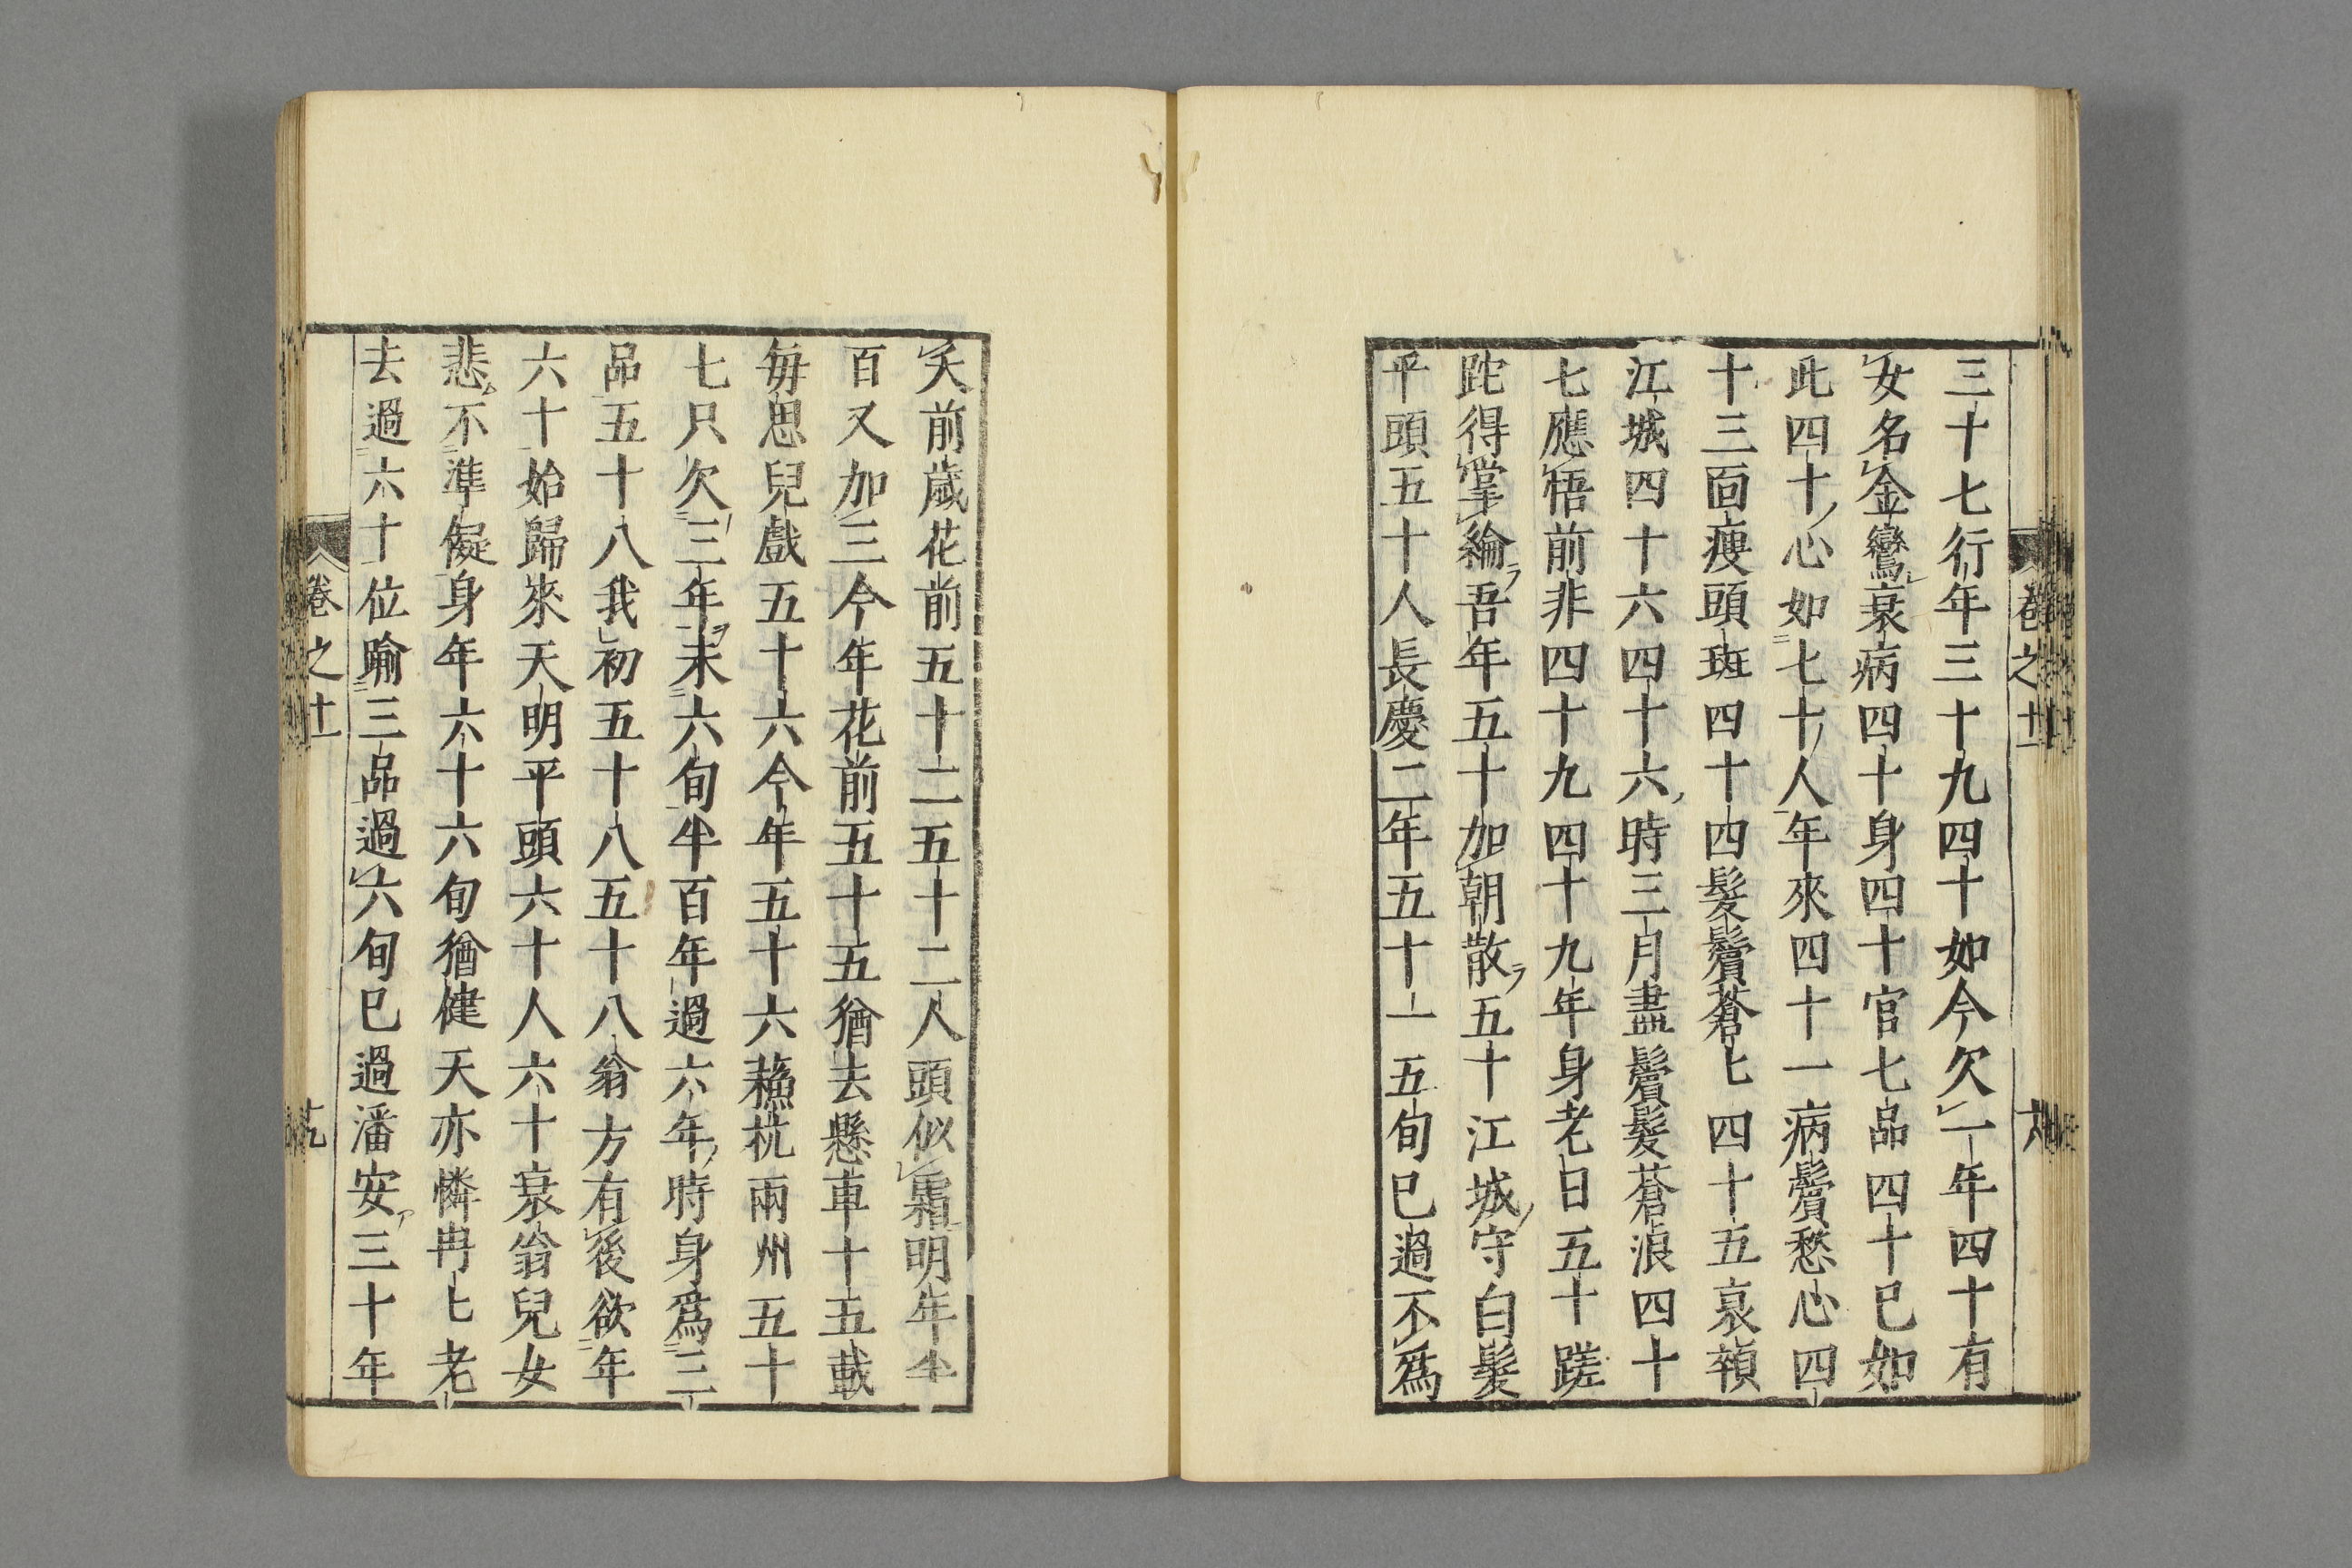 三十七行年三十九四十如今欠一年四十有
女名金鑾衰病四十身四十官七品四十已如
此四十心如七十人年來四十一病鬢愁心四
十三面瘦頭斑四十四髮鬢蒼〻四十五衰顇
江城四十六四十六時三月盡鬢髮蒼浪四十
七應悟前非四十九四十九年身老日五十蹉
跎得掌綸吾年五十加朝散五十江城守白髮
平頭五十人長慶二年五十一五旬已過不爲
卷之十一
夭前歲花前五十二五十二人頭似霜明年半
百又加三今年花前五十五猶去懸車十五載
每思兒戲五十六今年五十六蘓杭兩州五十
七只欠三年未六旬半百年過六年時身爲三
品五十八我初五十八五十八翁方有後欲年
六十始歸來天明平頭六十人六十衰翁兒女
悲不準儗身年六十六旬猶健天亦憐冉〻老
去過六十位踰三品過六旬已過潘安三十年
卷之十一